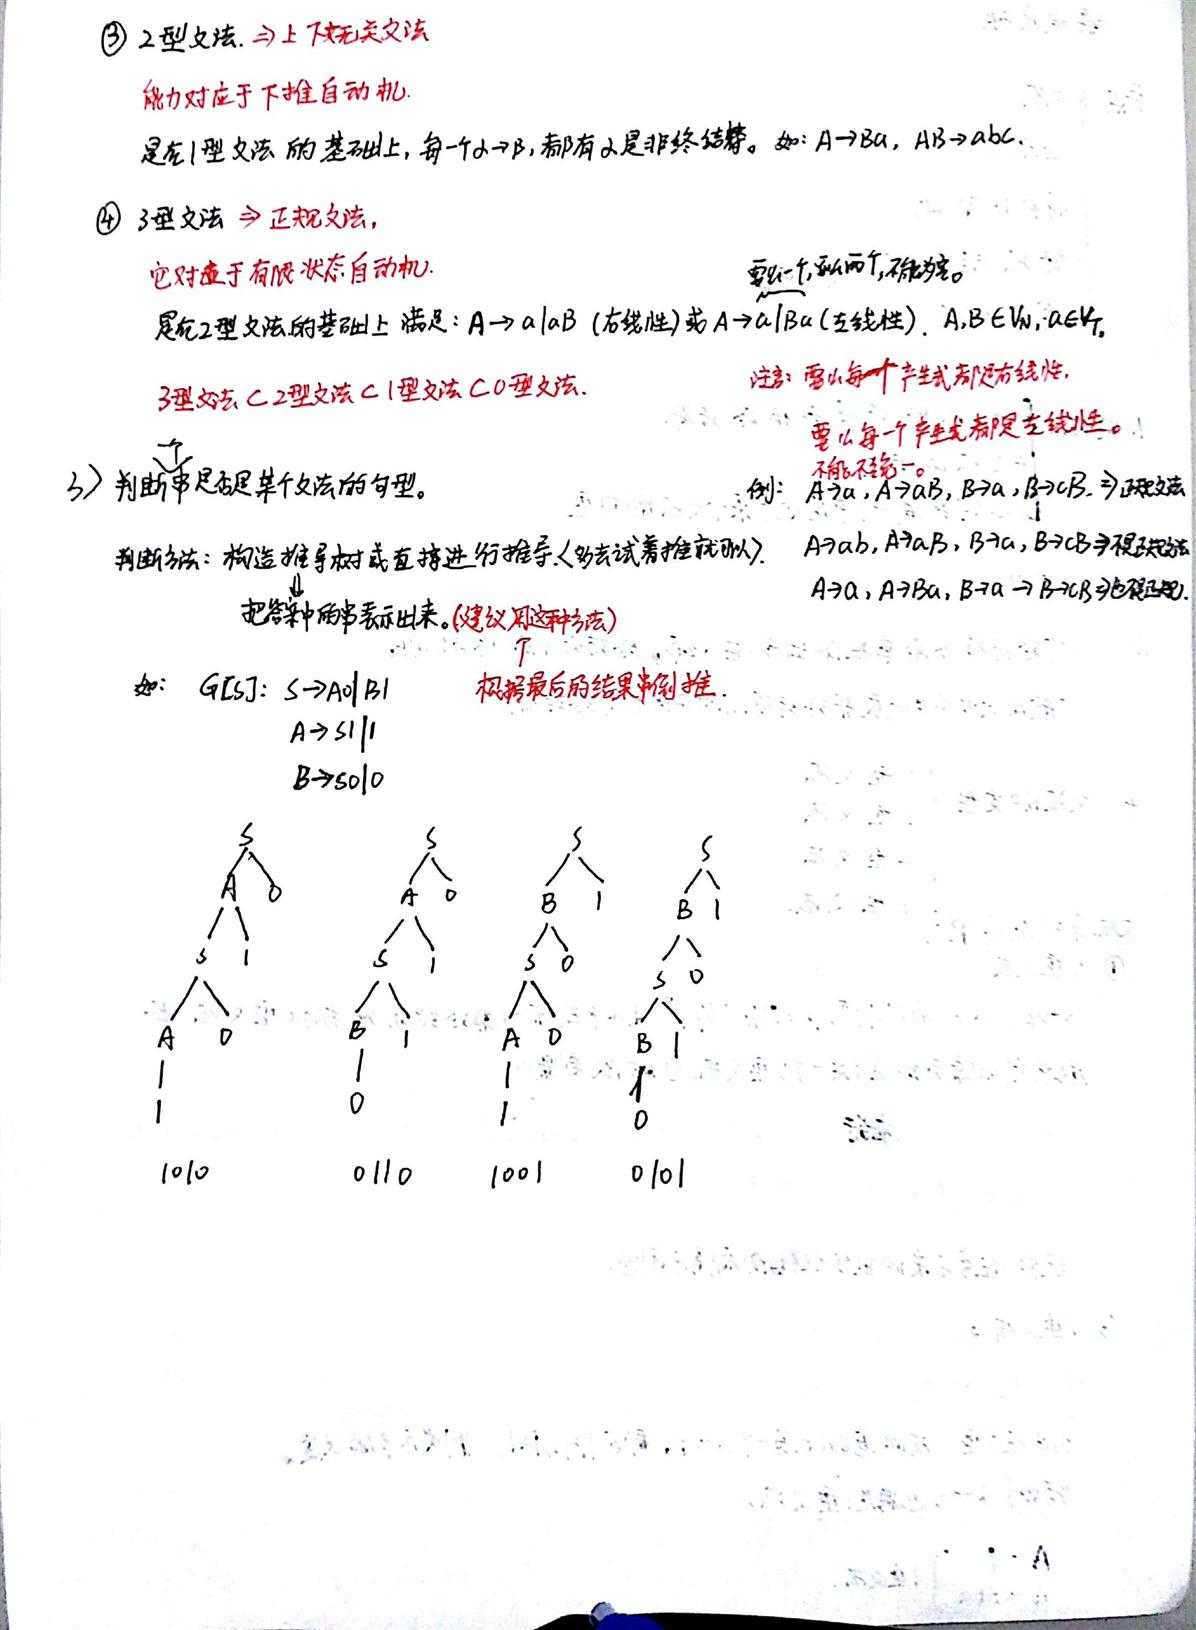 ③ 2型文法. ⇒上下文无关文法
能力对应于下推自动机.
是在1型文法的基础上，每一个α→β，都有α是非终结符。如：A→Ba，AB→abc.
④ 3型文法 ⇒ 正规文法，
它对应于有限状态自动机.
要么一个，要么两个，不能为空。
是在2型文法的基础上 满足：A→a|aB（右线性）或 A→a|Ba（左线性）. A,B∈VN，a∈VT。
3型文法⊂2型文法⊂1型文法⊂0型文法.
注意：要么每一个产生式都是右线性，
要么每一个产生式都是左线性。
不能不统一。
3）判断一个串是否是某个文法的句型。
例：A→a，A→aB，B→a，B→cB. ⇒正规文法
判断方法：构造推导树或直接进行推导.
A→ab，A→aB，B→a，B→cB⇒不是正规文法
A→a，A→Ba，B→a → B→cB⇒也不是正规.
把答案中的串表示出来。（建议用这种方法）
如： G[S]：S→A0|B1
根据最后的结果串倒推.
A→S1|1
B→S0|0
S S S S
A 0 A 0 B 1 B 1
S 1 S 1 S 0 S 0
A 0 B 1 A 0 B 1
1 0 1 0
1010 0110 1001 0101